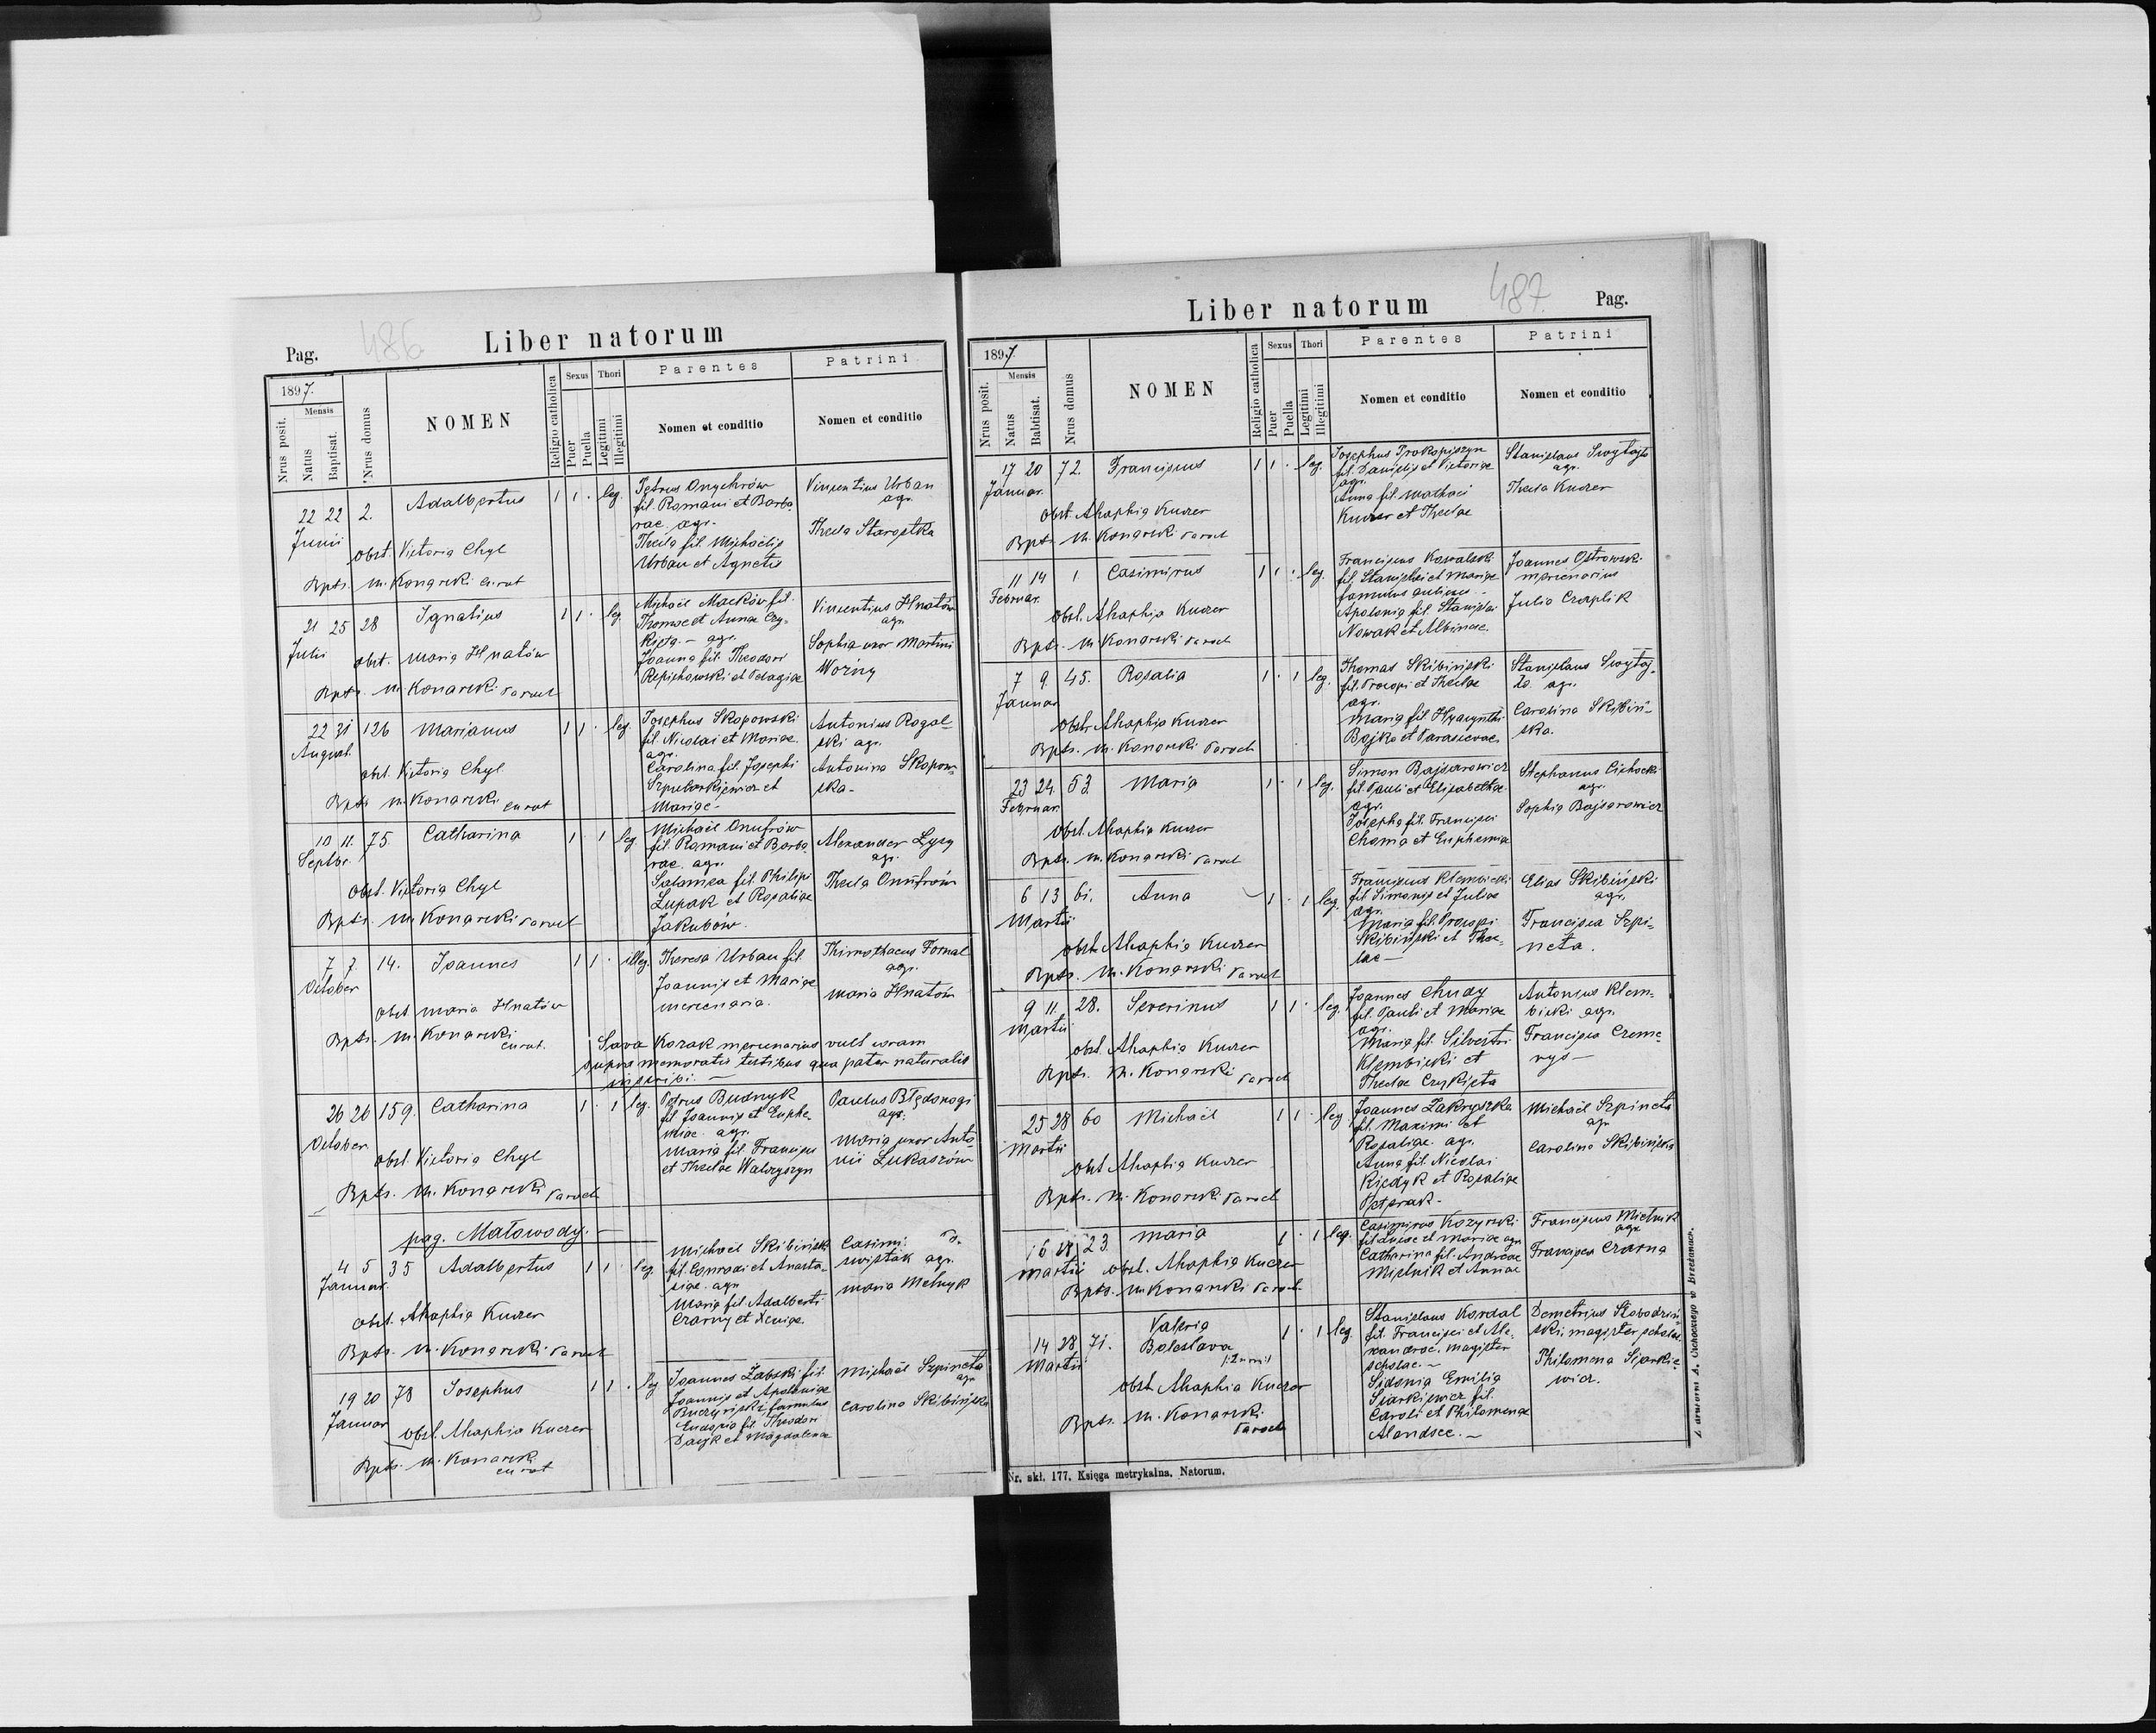 Pag. 486. Liber natorum
1897.
Nrus posit.
Mensis
Natus
Baptisat.
Nrus domus
NOMEN
Religio catholica
Sexus
Puer
Puella
Thori
Legitimi
Illegitimi
Parentes
Nomen et conditio
Patrini
Nomen et conditio
22 22 2. Adalbertus 1 1 · leg. Petrus Onychrów Vincentius Urban
Junii fil. Romani et Barba- agr.
rae agr. Thecla Starostka
obst. Victoria Chyl Thecla fil. Michaelis
Bpts. M. Konarski curat Urban et Agnetis
21 25 28 Ignatius 1 1 · leg. Michaël Maćków fil. Vincentius Hnatów
Julii Thomae et Annae Czy- agr.
kieta - agr. Sophia uxor Martini
obst. Maria Hnatów Joanna fil. Theodori Woźny
Bpts. M. Konarski Paroch Repichowski et Pelagiae
22 31 126 Marianus 1 1 · leg. Josephus Skopowski Antonius Rogal-
August. fil. Nicolai et Mariae ski agr.
agr. Antonina Skopow-
obst. Victoria Chyl Carolina fil. Josephi ska -
Bpts M. Konarski curat et
Mariae -
10 11. 75. Catharina 1 · 1 leg. Michaël Onufrów Alexander Łysy
Septbr. fil. Romani et Barba- agr.
rae agr. Thecla Onufrów
Obst. Victoria Chyl Salomea fil. Philipi
Bpts. M. Konarski Paroch Łupak et Rosaliae
Jakubów.
7 7 14. Joannes 1 1 · illeg. Theresa Urban fil. Thimothaeus Fornal
October Joannis et Mariae agr.
mercenaria. Maria Hnatów
obst Maria Hnatów
Bpts. M. Konarski curat.
Sava Kozak mercenarius vult coram
supra memoratis testibus qua pater naturalis
inscribi. -
26 26 159. Catharina 1 · 1 leg. Petrus Budnyk Paulus Błędonogi
October fil. Joannis et Euphe- agr.
miae agr. Maria uxor Anto-
obst. Victoria Chyl Maria fil. Francisci nii Łukaszów
Bpts. M. Konarski Paroch et Theclae Walczyszyn
pag. Małowody. -
4 5 35 Adalbertus 1 1 · leg. Michaël Skibiński Casimi
Januar. fil. Conradi et Anasta- agr.
siae agr. Maria Melnyk
obst. Ahaphia Kuczer Maria fil. Adalberti
Bpts. M. Konarski Paroch Czarny et Xeniae
19 20 78 Josephus 1 1 · leg Joannes Zabski fil. Michaël Szpineta
Januar Joannis et Apoloniae agr
famulus Carolina Skibińska
obst. Ahaphia Kuczer fil. Theodori
Bpts. M. Konarski curat et Magdalenae
Liber natorum 487. Pag.
1897.
Nrus posit.
Mensis
Natus
Babtisat.
Nrus domus
NOMEN
Religio catholica
Sexus
Puer
Puella
Thori
Legitimi
Illegitimi
Parentes
Nomen et conditio
Patrini
Nomen et conditio
17 20 72. Franciscus 1 1 · leg. Josephus Prokopiszyn Stanislaus
Januar. fil. Danielis et Victoriae agr.
agr. Thecla Kuczer
obst. Ahaphia Kuczer Anna fil. Mathaei
Bpts. M. Konarski Paroch Kuczer et Theclae
11 14 1 Casimirus 1 1 · leg. Franciscus Kowalski Joannes Ostrowski
Februar. fil. Stanislai et Mariae mercenarius
famulus aulicus - Julia Czaplik
obst. Ahaphia Kuczer Apolonia fil. Stanislai
Bpts. M. Konarski Paroch Nowak et Albinae.
7 9 45. Rosalia 1 · 1 leg. Thomas Skibiński Stanislaus
Januar fil. Procopi et Theclae agr.
agr. Carolina Skibiń-
Obstr. Ahaphia Kuczer Maria fil. Hyacynthi ska.
Bpts. M. Konarski Paroch Bojko et Parascevae
23 24. 53. Maria 1 · 1 leg. Simon Bajsarowicz Stephanus Cichocki
Februar. fil. Pauli et Elisabethae agr.
agr. Sophia Bajsarowicz
obst. Ahaphia Kuczer Josepha fil. Francisci
Bpts. M. Konarski Paroch Choma et Euphemiae
6 13 61. Anna 1 · 1 leg. Franciscus Klembicki Elias Skibiński
Martii fil. Simonis et Juliae agr.
agr. Francisca Szpi-
obst. Ahaphia Kuczer Maria fil. Procopi neta.
Bpts. M. Konarski Paroch Skibiński et Thec-
lae -
9 11. 28. Severinus 1 1 · leg. Joannes Chudy Antonius Klem-
Martii fil. Pauli et Mariae bicki agr.
agr. Francisca Czeme-
obst. Ahaphia Kuczer Maria fil. Silvestri rys -
Bpts. M. Konarski Paroch Klembicki et
Theclae Czykieta
25 28 60 Michaël 1 1 · leg. Joannes Zakryszka Michaël Szpineta
Martii fil. Maximi et agr
Rosaliae agr. Carolina Skibińska
obst Ahaphia Kuczer Anna fil. Nicolai
Bpts. M. Konarski Paroch Kiedyk et Rosaliae
16 18 23. Maria 1 · 1 leg. Casimirus Kozyrski Franciscus Mielnik
Martii fil. Lucae et Mariae agr. agr.
obst. Ahaphia Kuczer Catharina fil. Andreae Francisca Czarna
Bpts. M. Konarski Paroch Mielnik et Annae
14 28 71. Valeria 1 · 1 leg. Stanislaus Kordal Demetrius Słobodziń-
Martii Boleslava fil. Francisci et Ale- ski magister scholae
xandrae, magister Philomena Siarkie-
scholae. - wicz.
obst. Ahaphia Kuczer Sidonia Emilia
Bpts. M. Konarski Paroch Siarkiewicz fil.
Caroli et Philomenae
Alandsee. -
Nr. skł. 177. Księga metrykalna, Natorum.
Z drukarni A. Cichockiego w Brzeżanach.